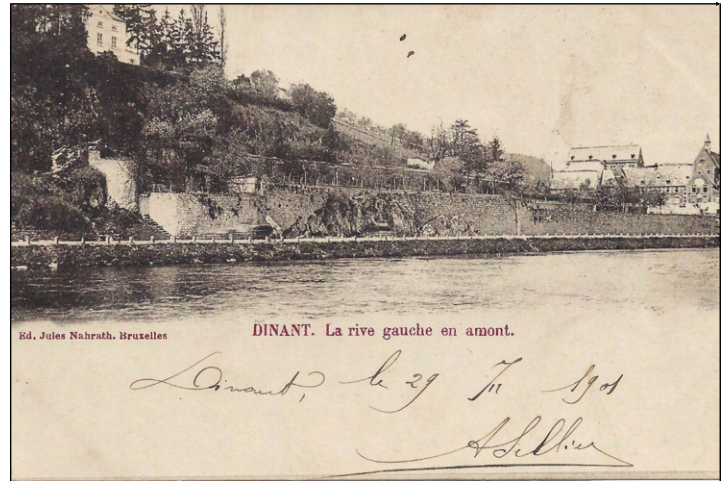 Ed. Jules Nahrath. Bruxelles
DINANT. La rive gauche en amont.
Dinant, le 29 1901